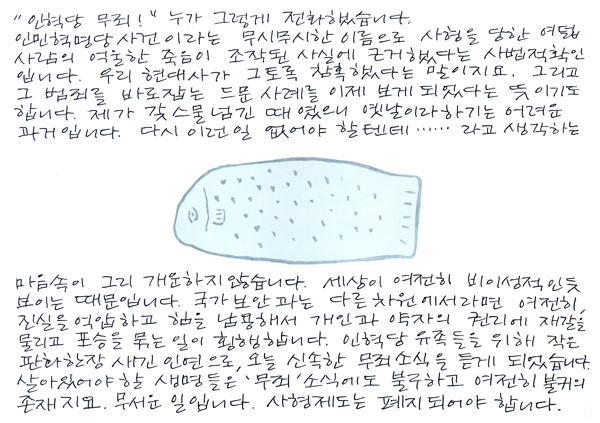 "인혁당 무죄!" 누가 그렇게 전화했습니다.
인민혁명당 사건이라는 무시무시한 이름으로 사형을 당한 여덟
사람의 억울한 죽음이 조작된 사실에 근거했다는 사법적확인
입니다. 우리 현대사가 그토록 참혹했다는 말이지요. 그리고
그 범죄를 바로잡는 드문 사례를 이제 보게 되었다는 뜻이기도
합니다. 제가 갓 스물 넘긴 때였으니 옛날이라하기는 어려운
과거입니다. 다시 이런일 없어야 할텐데 …… 라고 생각하는
마음속이 그리 개운하지 않습니다. 세상이 여전히 비이성적인듯
보이는 때문입니다. 국가보안과는 다른 차원에서라면 여전히,
진실을 억압하고 힘을 남용해서 개인과 약자의 권리에 재갈을
물리고 포승을 묶는 일이 횡행합니다. 인혁당 유족들을 위해 작은
판화한장 새긴 인연으로, 오늘 신속한 무죄소식을 듣게 되었습니다.
살아왔어야 할 생명들은 '무죄' 소식에도 불구하고 여전히 불귀의
존재지요. 무서운 일입니다. 사형제도는 폐지되어야 합니다.